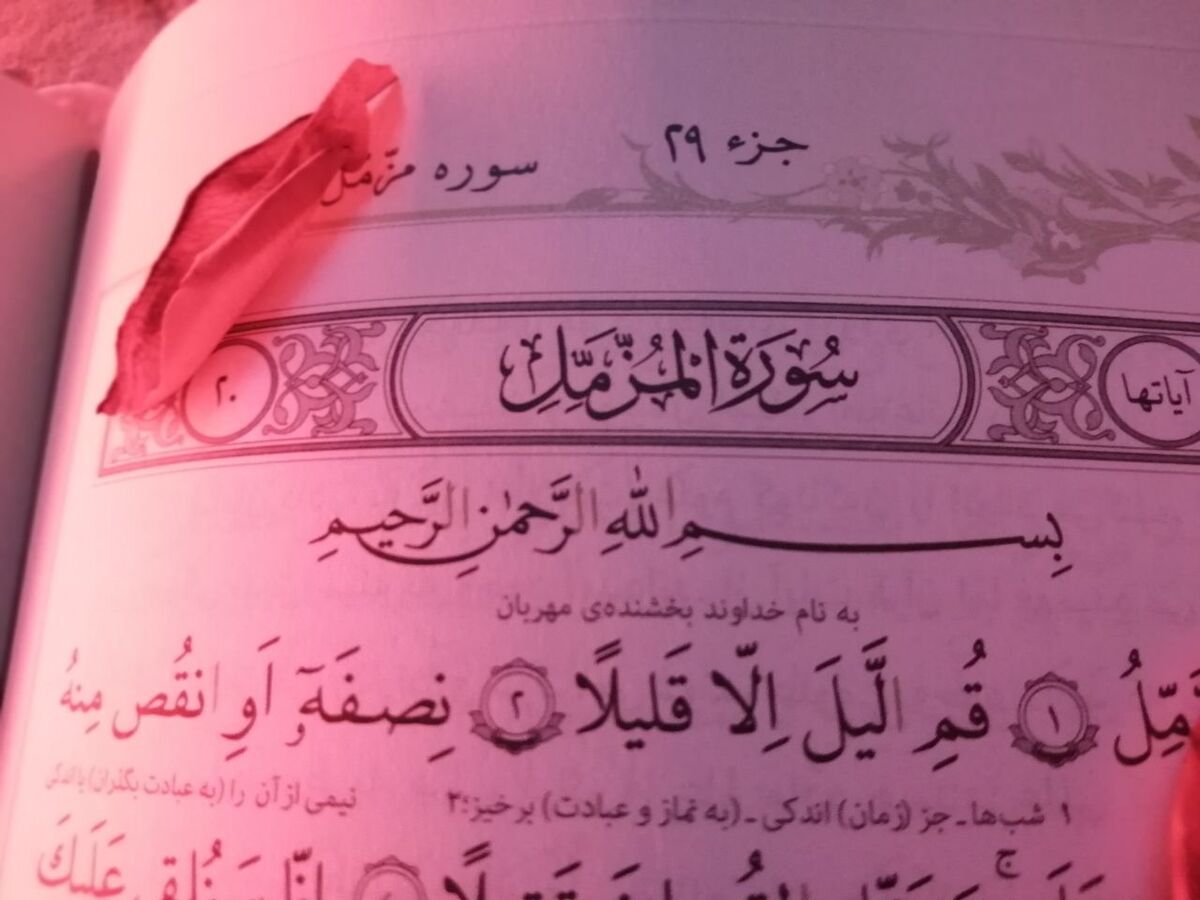 جزء ۲۹
سوره مزّمّل
آیاتها
سُورَةُ الْمُزَّمِّلِ
۲۰
بِسمِ اللهِ الرَّحمٰنِ الرَّحیمِ
به نام خداوند بخشنده‌ی مهربان
۱ قُمِ الَّیلَ اِلّا قَلیلًا ۲ نِصفَهٓ اَوِ انقُص مِنهُ
۱ شب‌ها ـ جز (زمان) اندکی ـ (به نماز و عبادت) برخیز؛ ۲ نیمی از آن را (به عبادت بگذران) یا اندکی
عَلَیكَ